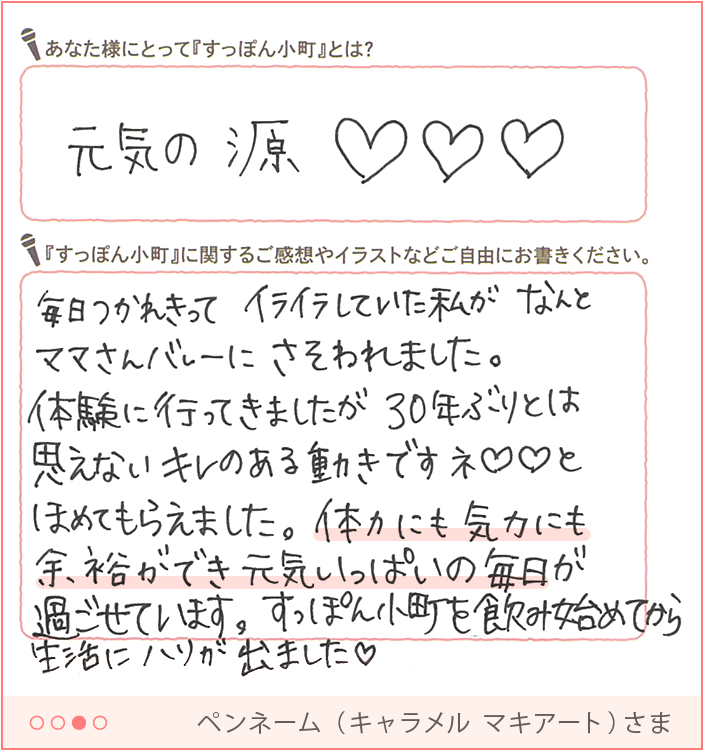 あなた様にとって『すっぽん小町』とは?
元気の源 ♡♡♡
『すっぽん小町』に関するご感想やイラストなどご自由にお書きください。
毎日つかれきって イライラしていた私が なんと
ママさんバレーに さそわれました。
体験に行ってきましたが 30年ぶりとは
思えない キレのある 動きですネ♡♡と
ほめてもらえました。体力にも 気力にも
余裕ができ 元気いっぱいの 毎日が
過ごせています。すっぽん小町を飲み始めてから
生活に ハリが 出ました♡
ペンネーム (キャラメル マキアート) さま